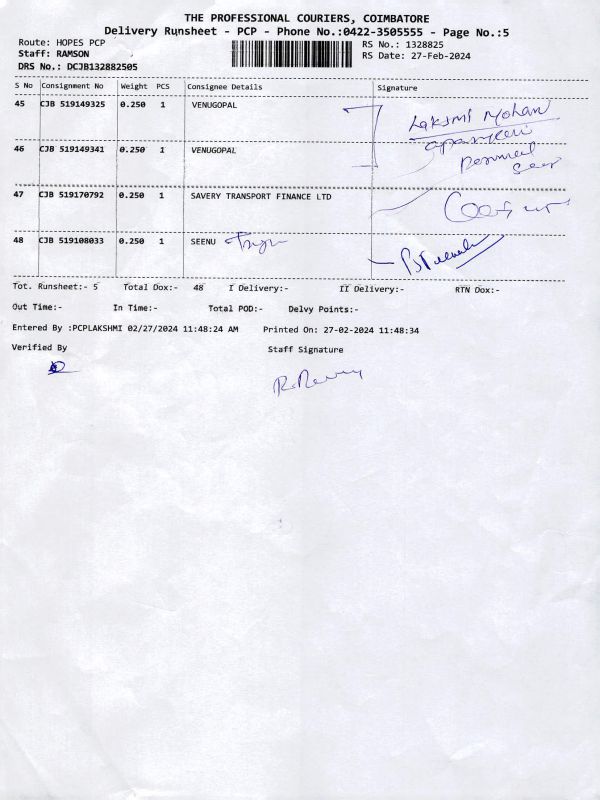 THE PROFESSIONAL COURIERS, COIMBATORE
Delivery Runsheet - PCP - Phone No.:0422-3505555 - Page No.:5
Route: HOPES PCP
Staff: RAMSON
DRS No.: DCJB132882505
RS No.: 1328825
RS Date: 27-Feb-2024
S No Consignment No Weight PCS Consignee Details Signature
45 CJB 519149325 0.250 1 VENUGOPAL
Laksmi Mohan
46 CJB 519149341 0.250 1 VENUGOPAL
47 CJB 519170792 0.250 1 SAVERY TRANSPORT FINANCE LTD
48 CJB 519108033 0.250 1 SEENU
Tot. Runsheet:- 5 Total Dox:- 48 I Delivery:- II Delivery:- RTN Dox:-
Out Time:- In Time:- Total POD:- Delvy Points:-
Entered By :PCPLAKSHMI 02/27/2024 11:48:24 AM Printed On: 27-02-2024 11:48:34
Verified By Staff Signature